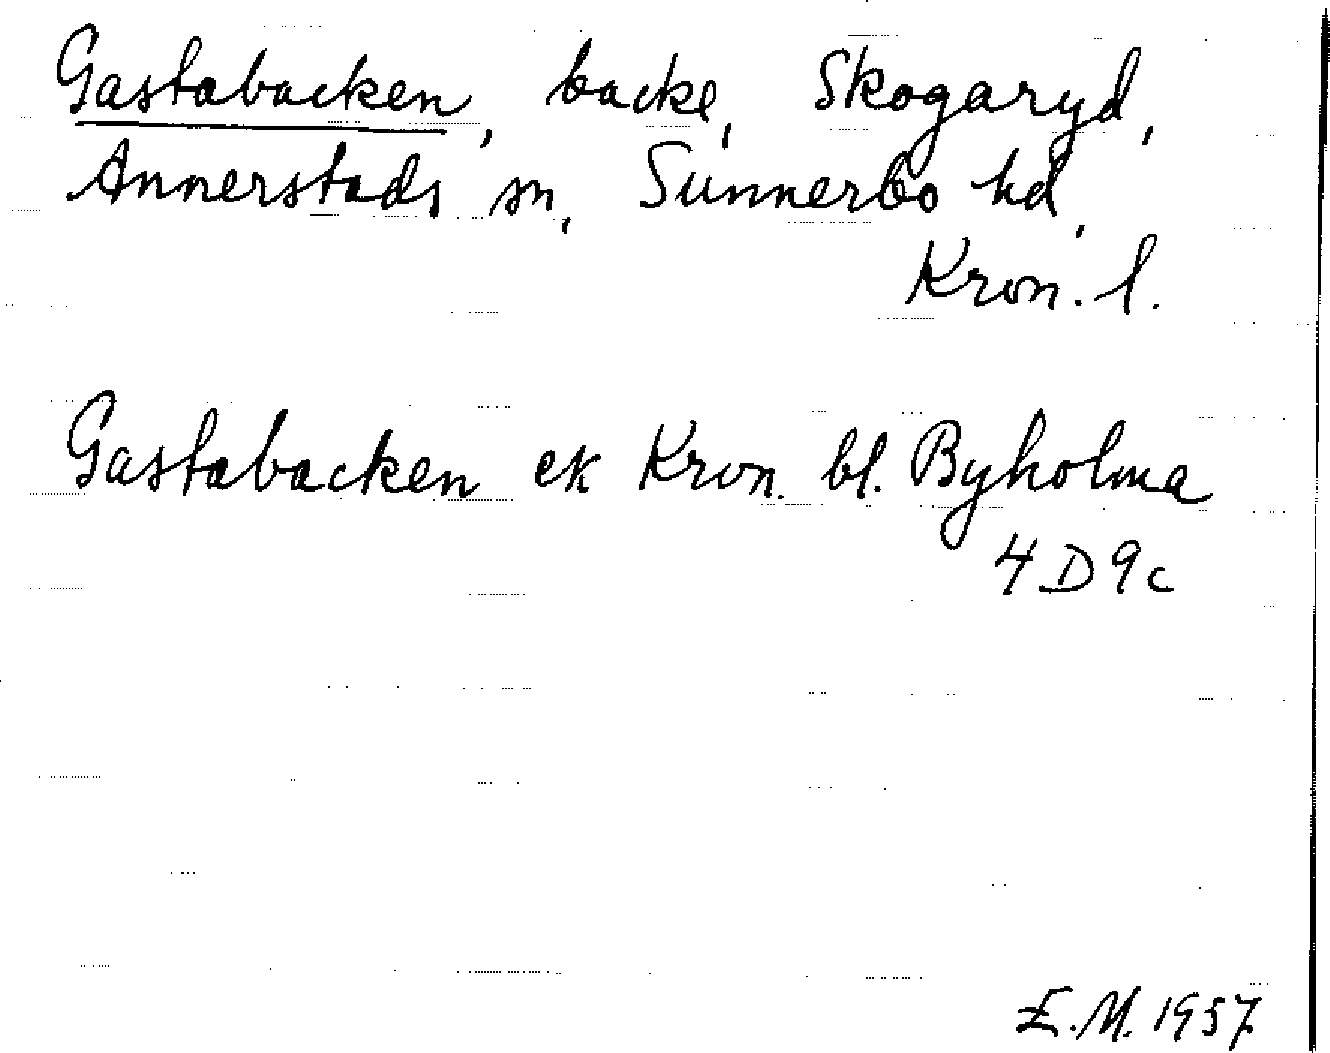 Gastabacken, backe, Skogaryd,
Annerstads sn, Sunnerbo hd,
Kron. l.
Gastabacken ek Kron. bl. Byholma
4 D 9 c
E.M. 1957